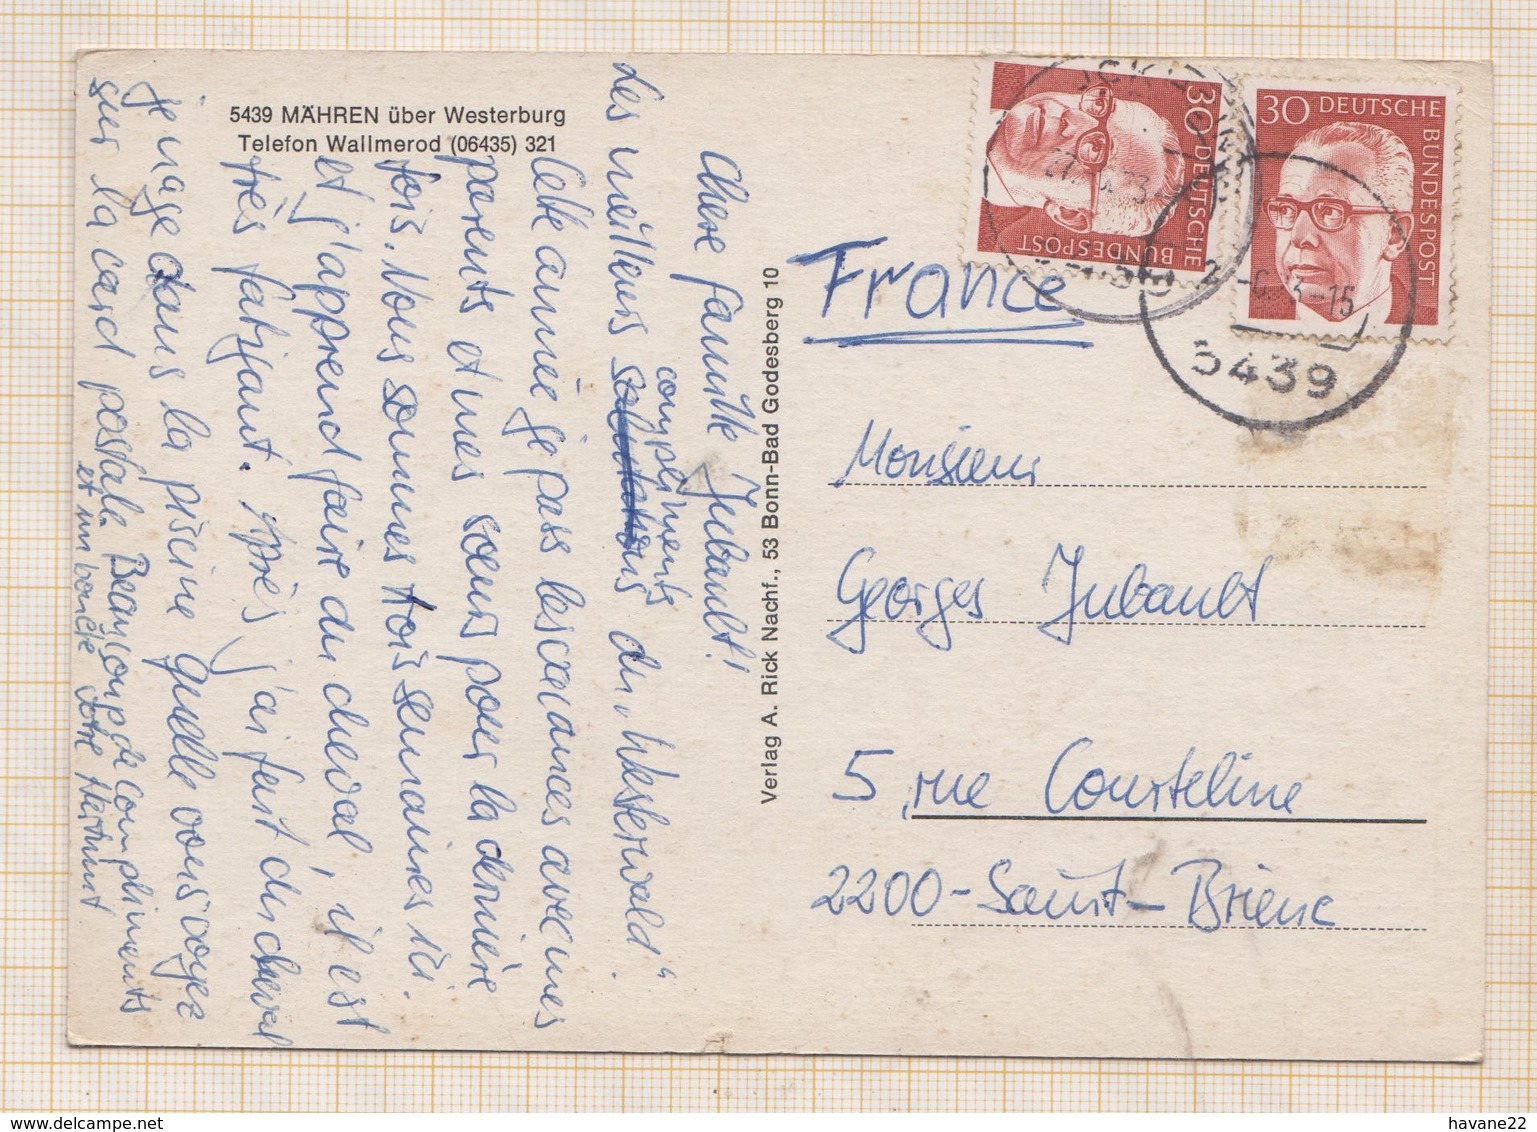 5439 MÄHREN über Westerburg
Telefon Wallmerod (06435) 321
Chère famille Jubault!
des meilleurs salutations du "Westerwald".
compliments
Cette année je pass les vacances avec mes
parents et mes sœurs pour la dernière
fois. Nous sommes trois semaines ici.
et j'apprend faire du cheval, il est
très fatigant. Après j'ai fait du cheval
je nage dans la piscine quelle vous voyez
sur la card postale. Beaucoup de compliments
et un bonde votre Hartmut
Verlag A. Rick Nachf., 53 Bonn-Bad Godesberg 10
30 DEUTSCHE BUNDESPOST
30 DEUTSCHE BUNDESPOST
5439
France
Monsieur
Georges Jubault
5, rue Courteline
2200-Saint-Brieuc
havane22